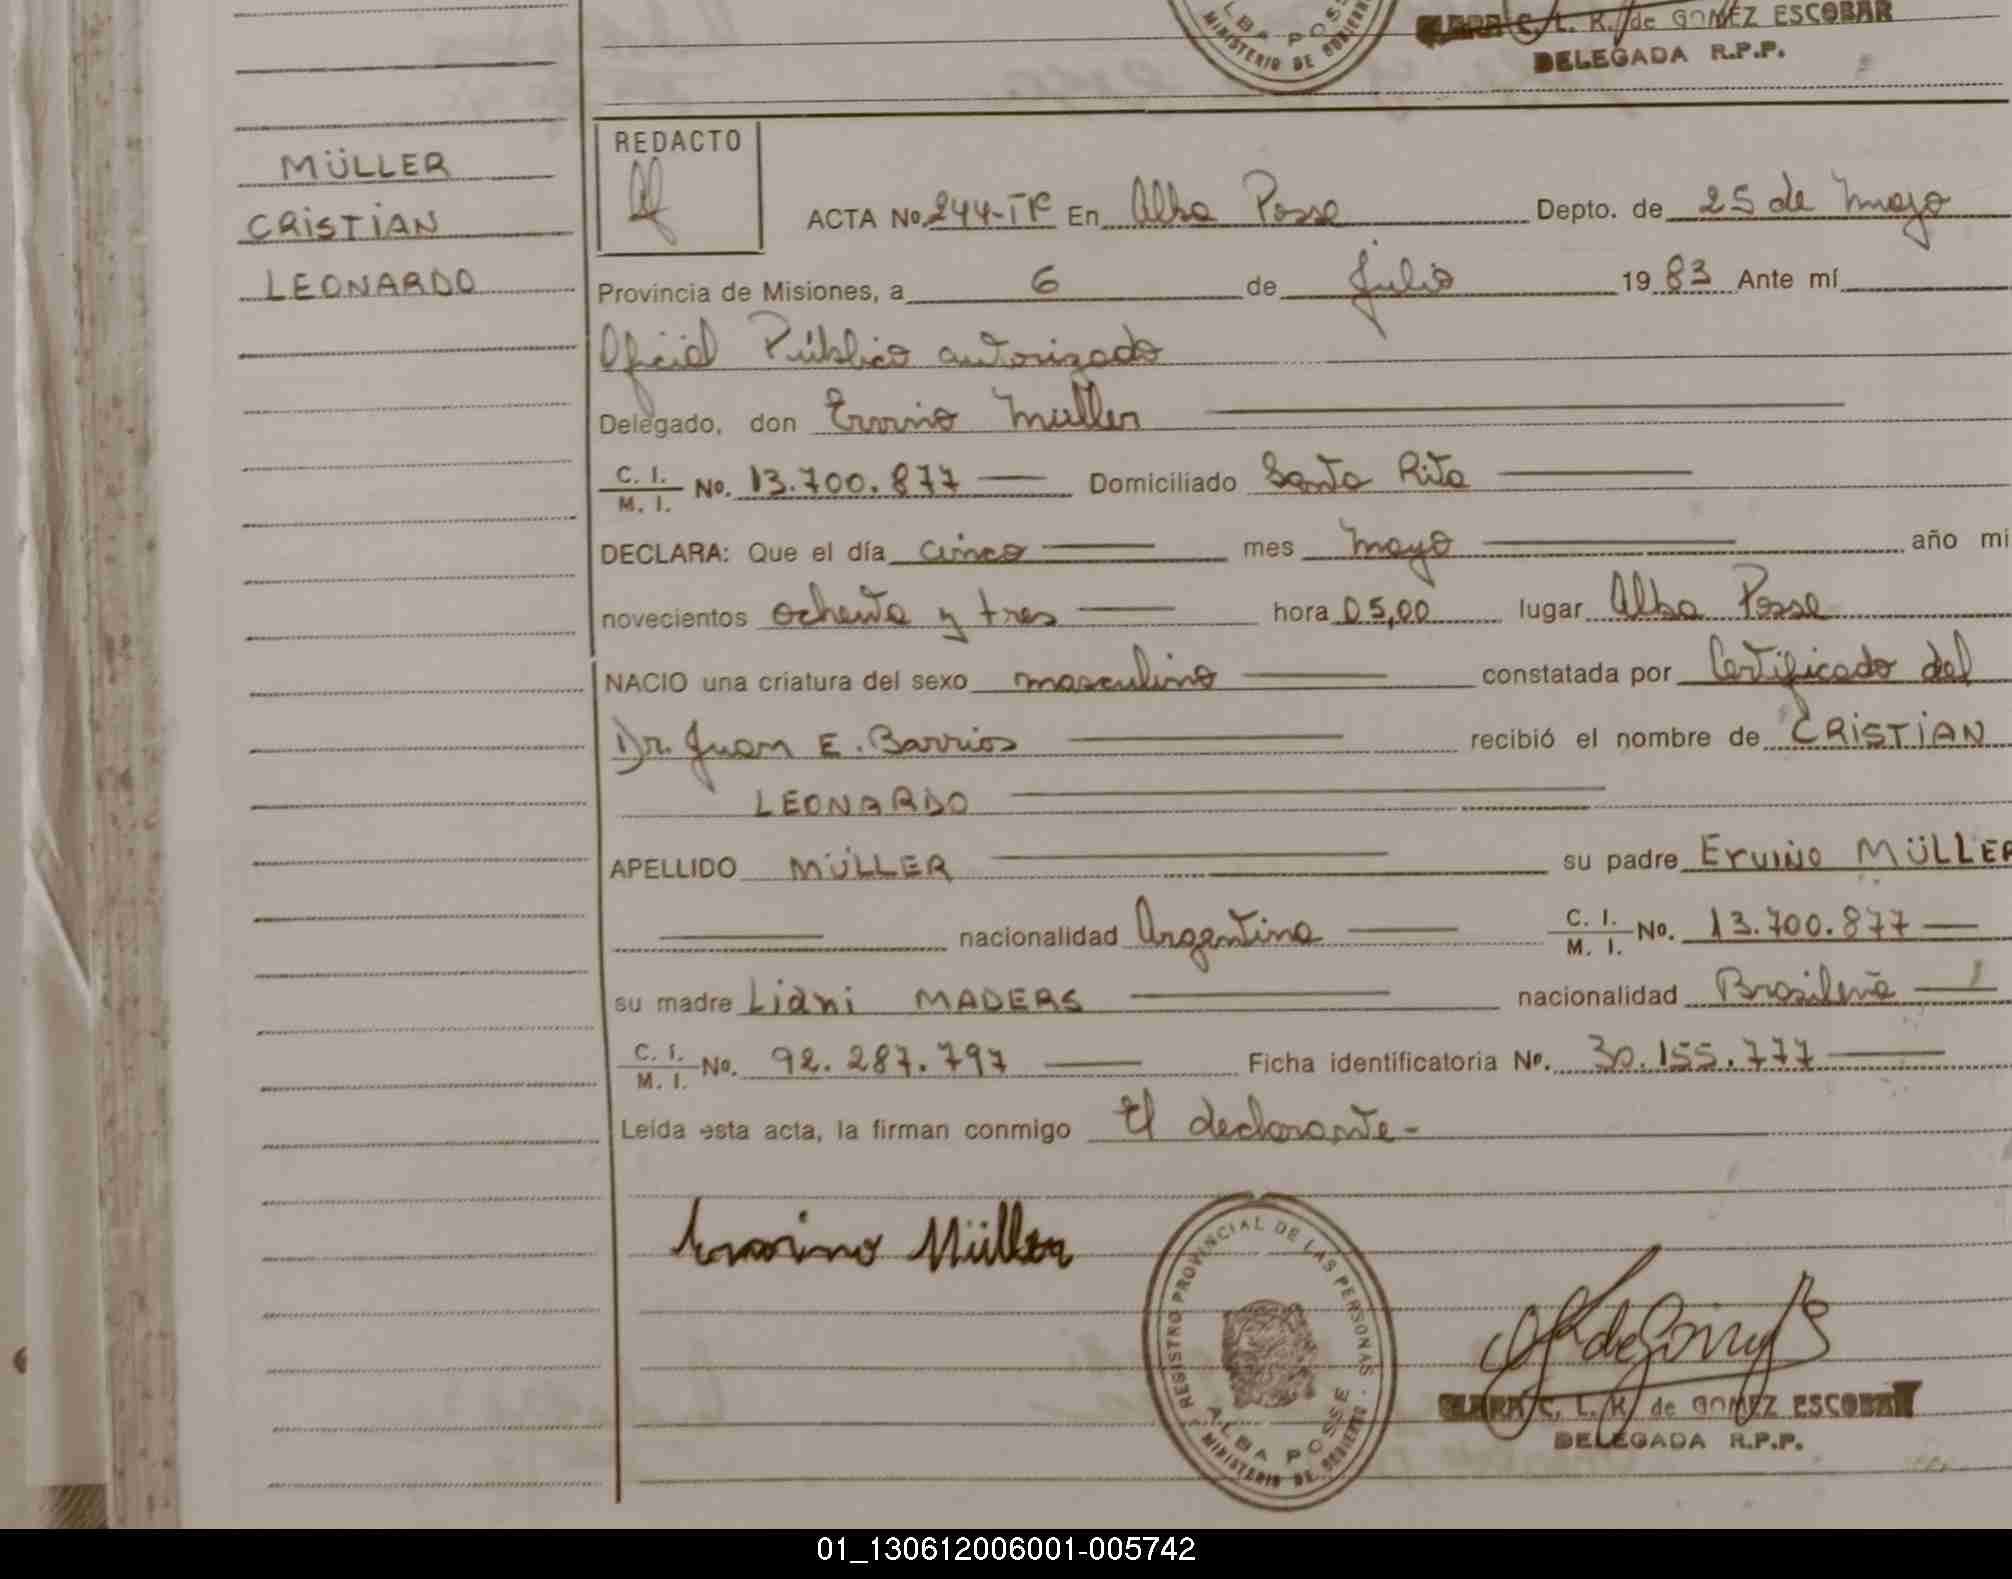 CLARA C. L. R. de GOMEZ ESCOBAR
DELEGADA R.P.P.
ALBA POSSE
MINISTERIO DE GOBIERNO
MÜLLER
CRISTIAN
LEONARDO
REDACTO
ACTA No. 244-TR En Alba Posse Depto. de 25 de Mayo
Provincia de Misiones, a 6 de Julio 1983 Ante mí
Oficial Público autorizado
Delegado, don Ervino Muller
C. I. / M. I. No. 13.700.877 Domiciliado Santa Rita
DECLARA: Que el día cinco mes mayo año mi
novecientos ochenta y tres hora 05,00 lugar Alba Posse
NACIO una criatura del sexo masculino constatada por Certificado del
Dr. Juan E. Barrios recibió el nombre de CRISTIAN
LEONARDO
APELLIDO MÜLLER su padre Ervino MÜLLER
nacionalidad Argentina C. I. / M. I. No. 13.700.877
su madre Liani MADERS nacionalidad Brasileña
C. I. / M. I. No. 92.287.797 Ficha identificatoria Nº. 30.155.777
Leída esta acta, la firman conmigo El declarante-
Ervino Müller
REGISTRO PROVINCIAL DE LAS PERSONAS
ALBA POSSE
MINISTERIO DE GOBIERNO
CLARA C. L. R. de GOMEZ ESCOBAR
DELEGADA R.P.P.
01_130612006001-005742